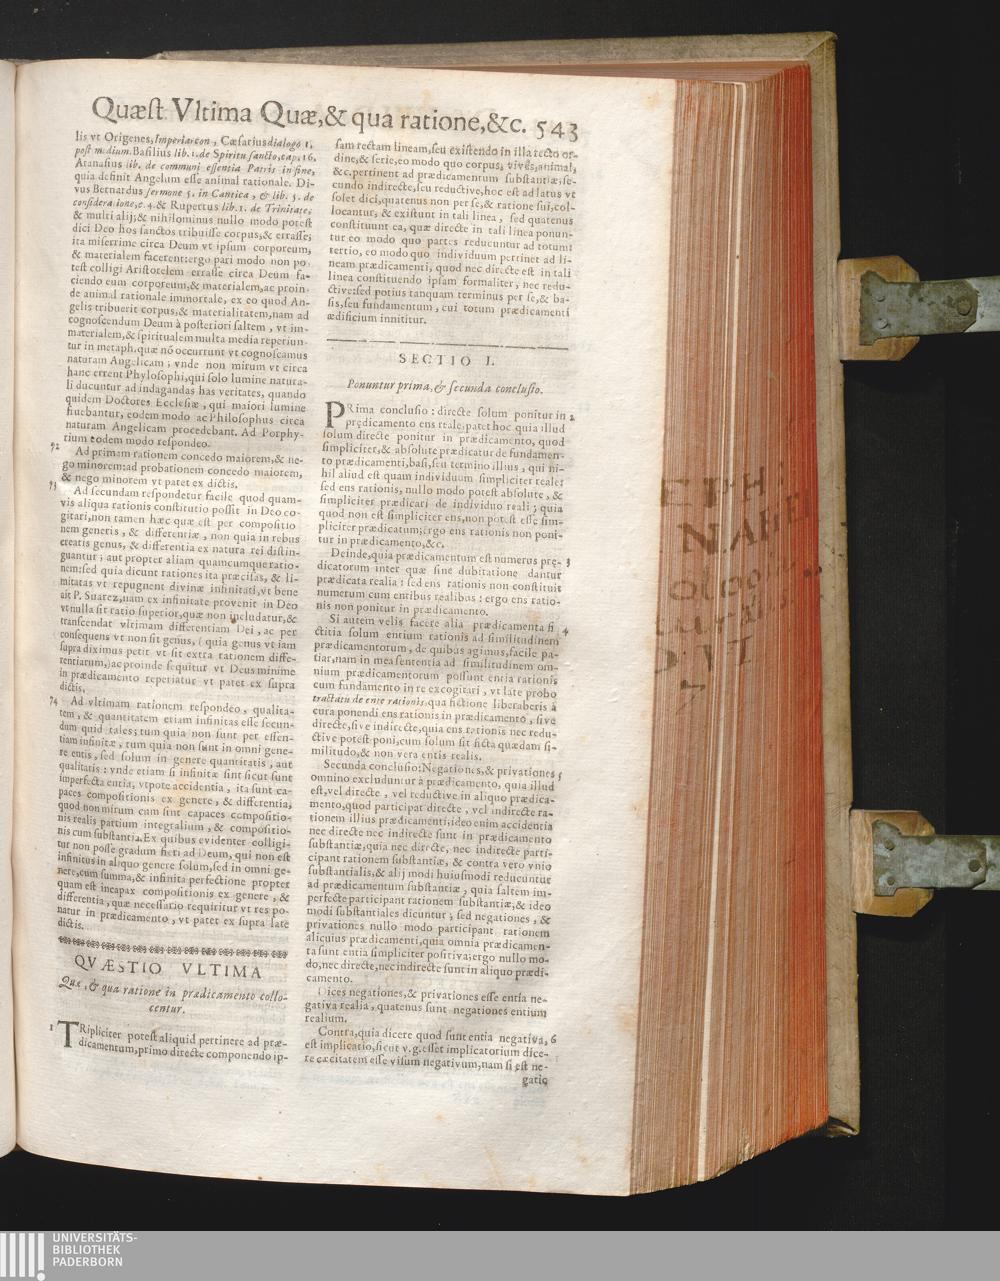 Quæst Vltima Quæ, & qua ratione, &c. 543
lis vt Origenes, Imperiarcon, Cæsarius dialogo 1.
post medium. Basilius lib. 1. de Spiritu sancto, cap. 16.
Atanasius lib. de communi essentia Patris in fine,
quia definit Angelum esse animal rationale. Di-
vus Bernardus sermone 5. in Cantica, & lib. 5. de
consideratione, c. 4. & Rupertus lib. 1. de Trinitate,
& multi alij; & nihilominus nullo modo potest
dici Deo hos sanctos tribuisse corpus, & errasse;
ita miserrime circa Deum vt ipsum corporeum,
& materialem facerent: ergo pari modo non po-
test colligi Aristotelem errasse circa Deum fa-
ciendo eum corporeum, & materialem, ac proin-
de animal rationale immortale, ex eo quod An-
gelis tribuerit corpus, & materialitatem, nam ad
cognoscendum Deum à posteriori saltem, vt im-
materialem, & spiritualem multa media reperiun-
tur in metaph. quæ nō occurrunt vt cognoscamus
naturam Angelicam; vnde non mirum vt circa
hanc errent Phylosophi, qui solo lumine natura-
li ducuntur ad indagandas has veritates, quando
quidem Doctores Ecclesiæ, qui maiori lumine
fruebantur, eodem modo ac Philosophus circa
naturam Angelicam procedebant. Ad Porphy-
rium eodem modo respondeo.
72 Ad primam rationem concedo maiorem, & ne-
go minorem: ad probationem concedo maiorem,
& nego minorem vt patet ex dictis.
73 Ad secundam respondetur facile quod quam-
vis aliqua rationis constitutio possit in Deo co-
gitari, non tamen hæc quæ est per compositio
nem generis, & differentiæ, non quia in rebus
creatis genus, & differentia ex natura rei distin-
guantur; aut propter aliam quamcumque ratio-
nem: sed quia dicunt rationes ita præcisas, & li-
mitatas vt repugnent divinæ infinitati, vt bene
ait P. Suarez, nam ex infinitate provenit in Deo
vt nulla sit ratio superior, quæ non includatur, &
transcendat vltimam differentiam Dei, ac per
consequens vt non sit genus, (quia genus vt iam
supra diximus petit vt sit extra rationem diffe-
rentiarum,) ac proinde sequitur vt Deus minime
in prædicamento reperiatur vt patet ex supra
dictis.
74 Ad vltimam rationem respondeo, qualita-
tem, & quantitatem etiam infinitas esse secun-
dum quid tales; tum quia non sunt per essen-
tiam infinitæ, tum quia non sunt in omni gene-
re entis, sed solum in genere quantitatis, aut
qualitatis: vnde etiam si infinitæ sint sicut sunt
imperfecta entia, vtpote accidentia, ita sunt ca-
paces compositionis ex genere, & differentia,
quod non mirum cum sint capaces compositio-
nis realis partium integralium, & compositio-
nis cum substantia. Ex quibus evidenter colligi-
tur non posse gradum fieri ad Deum, qui non est
infinitus in aliquo genere solum, sed in omni ge-
nere, cum summa, & infinita perfectione propter
quam est incapax compositionis ex genere, &
differentia, quæ necessario requiritur vt res po-
natur in prædicamento, vt patet ex supra late
dictis.
QVÆSTIO VLTIMA
Quæ, & qua ratione in prædicamento collo-
centur.
1 TRipliciter potest aliquid pertinere ad præ-
dicamentum, primo directe componendo ip-
sam rectam lineam, seu existendo in illa recto or-
dine, & serie, eo modo quo corpus, vivēs, animal,
&c. pertinent ad prædicamentum substantiæ; se-
cundo indirecte, seu reductive, hoc est ad latus vt
solet dici, quatenus non per se, & ratione sui, col-
locantur, & existunt in tali linea, sed quatenus
constituunt ea, quæ directe in tali linea ponun-
tur eo modo quo partes reducuntur ad totum:
tertio, eo modo quo individuum pertinet ad li-
neam prædicamenti, quod nec directe est in tali
linea constituendo ipsam formaliter, nec redu-
ctive: sed potius tanquam terminus per se, & ba-
sis, seu fundamentum, cui totum prædicamenti
ædificium innititur.
SECTIO I.
Ponuntur prima, & secunda conclusio.
PRima conclusio: directe solum ponitur in 2
prędicamento ens reale: patet hoc quia illud
solum directe ponitur in prædicamento, quod
simpliciter, & absolute prædicatur de fundamen-
to prædicamenti, basi, seu termino illius, qui ni-
hil aliud est quam individuum simpliciter reale;
sed ens rationis, nullo modo potest absolute, &
simpliciter prædicari de individuo reali; quia
quod non est simpliciter ens, non potest esse sim-
pliciter prædicatum; ergo ens rationis non poni-
tur in prædicamento, &c.
Deinde, quia prædicamentum est numerus prę- 3
dicatorum inter quæ sine dubitatione dantur
prædicata realia: sed ens rationis non constituit
numerum cum entibus realibus: ergo ens ratio-
nis non ponitur in prædicamento.
Si autem velis facere alia prædicamenta fi 4
ctitia solum entium rationis ad similitudinem
prædicamentorum, de quibus agimus, facile pa-
tiar, nam in mea sententia ad similitudinem om-
nium prædicamentorum possunt entia rationis
cum fundamento in re excogitari, vt late probo
tractatu de ente rationis, qua fictione liberaberis à
cura ponendi ens rationis in prædicamento, sive
directe, sive indirecte, quia ens rationis nec redu-
ctive potest poni, cum solum sit ficta quædam si-
militudo, & non vera entis realis.
Secunda conclusio: Negationes, & privationes 5
omnino excluduntur à prædicamento, quia illud
est, vel directe, vel reductive in aliquo prædica-
mento, quod participat directe, vel indirecte ra-
tionem illius prædicamenti: ideo enim accidentia
nec directe nec indirecte sunt in prædicamento
substantiæ, quia nec directe, nec indirecte parti-
cipant rationem substantiæ, & contra vero vnio
substantialis, & alij modi huiusmodi reducuntur
ad prædicamentum substantiæ, quia saltem im-
perfecte participant rationem substantiæ; & ideo
modi substantiales dicuntur; sed negationes, &
privationes nullo modo participant rationem
alicuius prædicamenti, quia omnia prædicamen-
ta sunt entia simpliciter positiva; ergo nullo mo-
do, nec directe, nec indirecte sunt in aliquo prædi-
camento.
Dices negationes, & privationes esse entia ne-
gativa realia, quatenus sunt negationes entium
realium.
Contra, quia dicere quod sunt entia negativa, 6
est implicatio, sicut v. g. esset implicatorium dice-
re cæcitatem esse visum negativum, nam si est ne-
gatio
UNIVERSITÄTS-
BIBLIOTHEK
PADERBORN